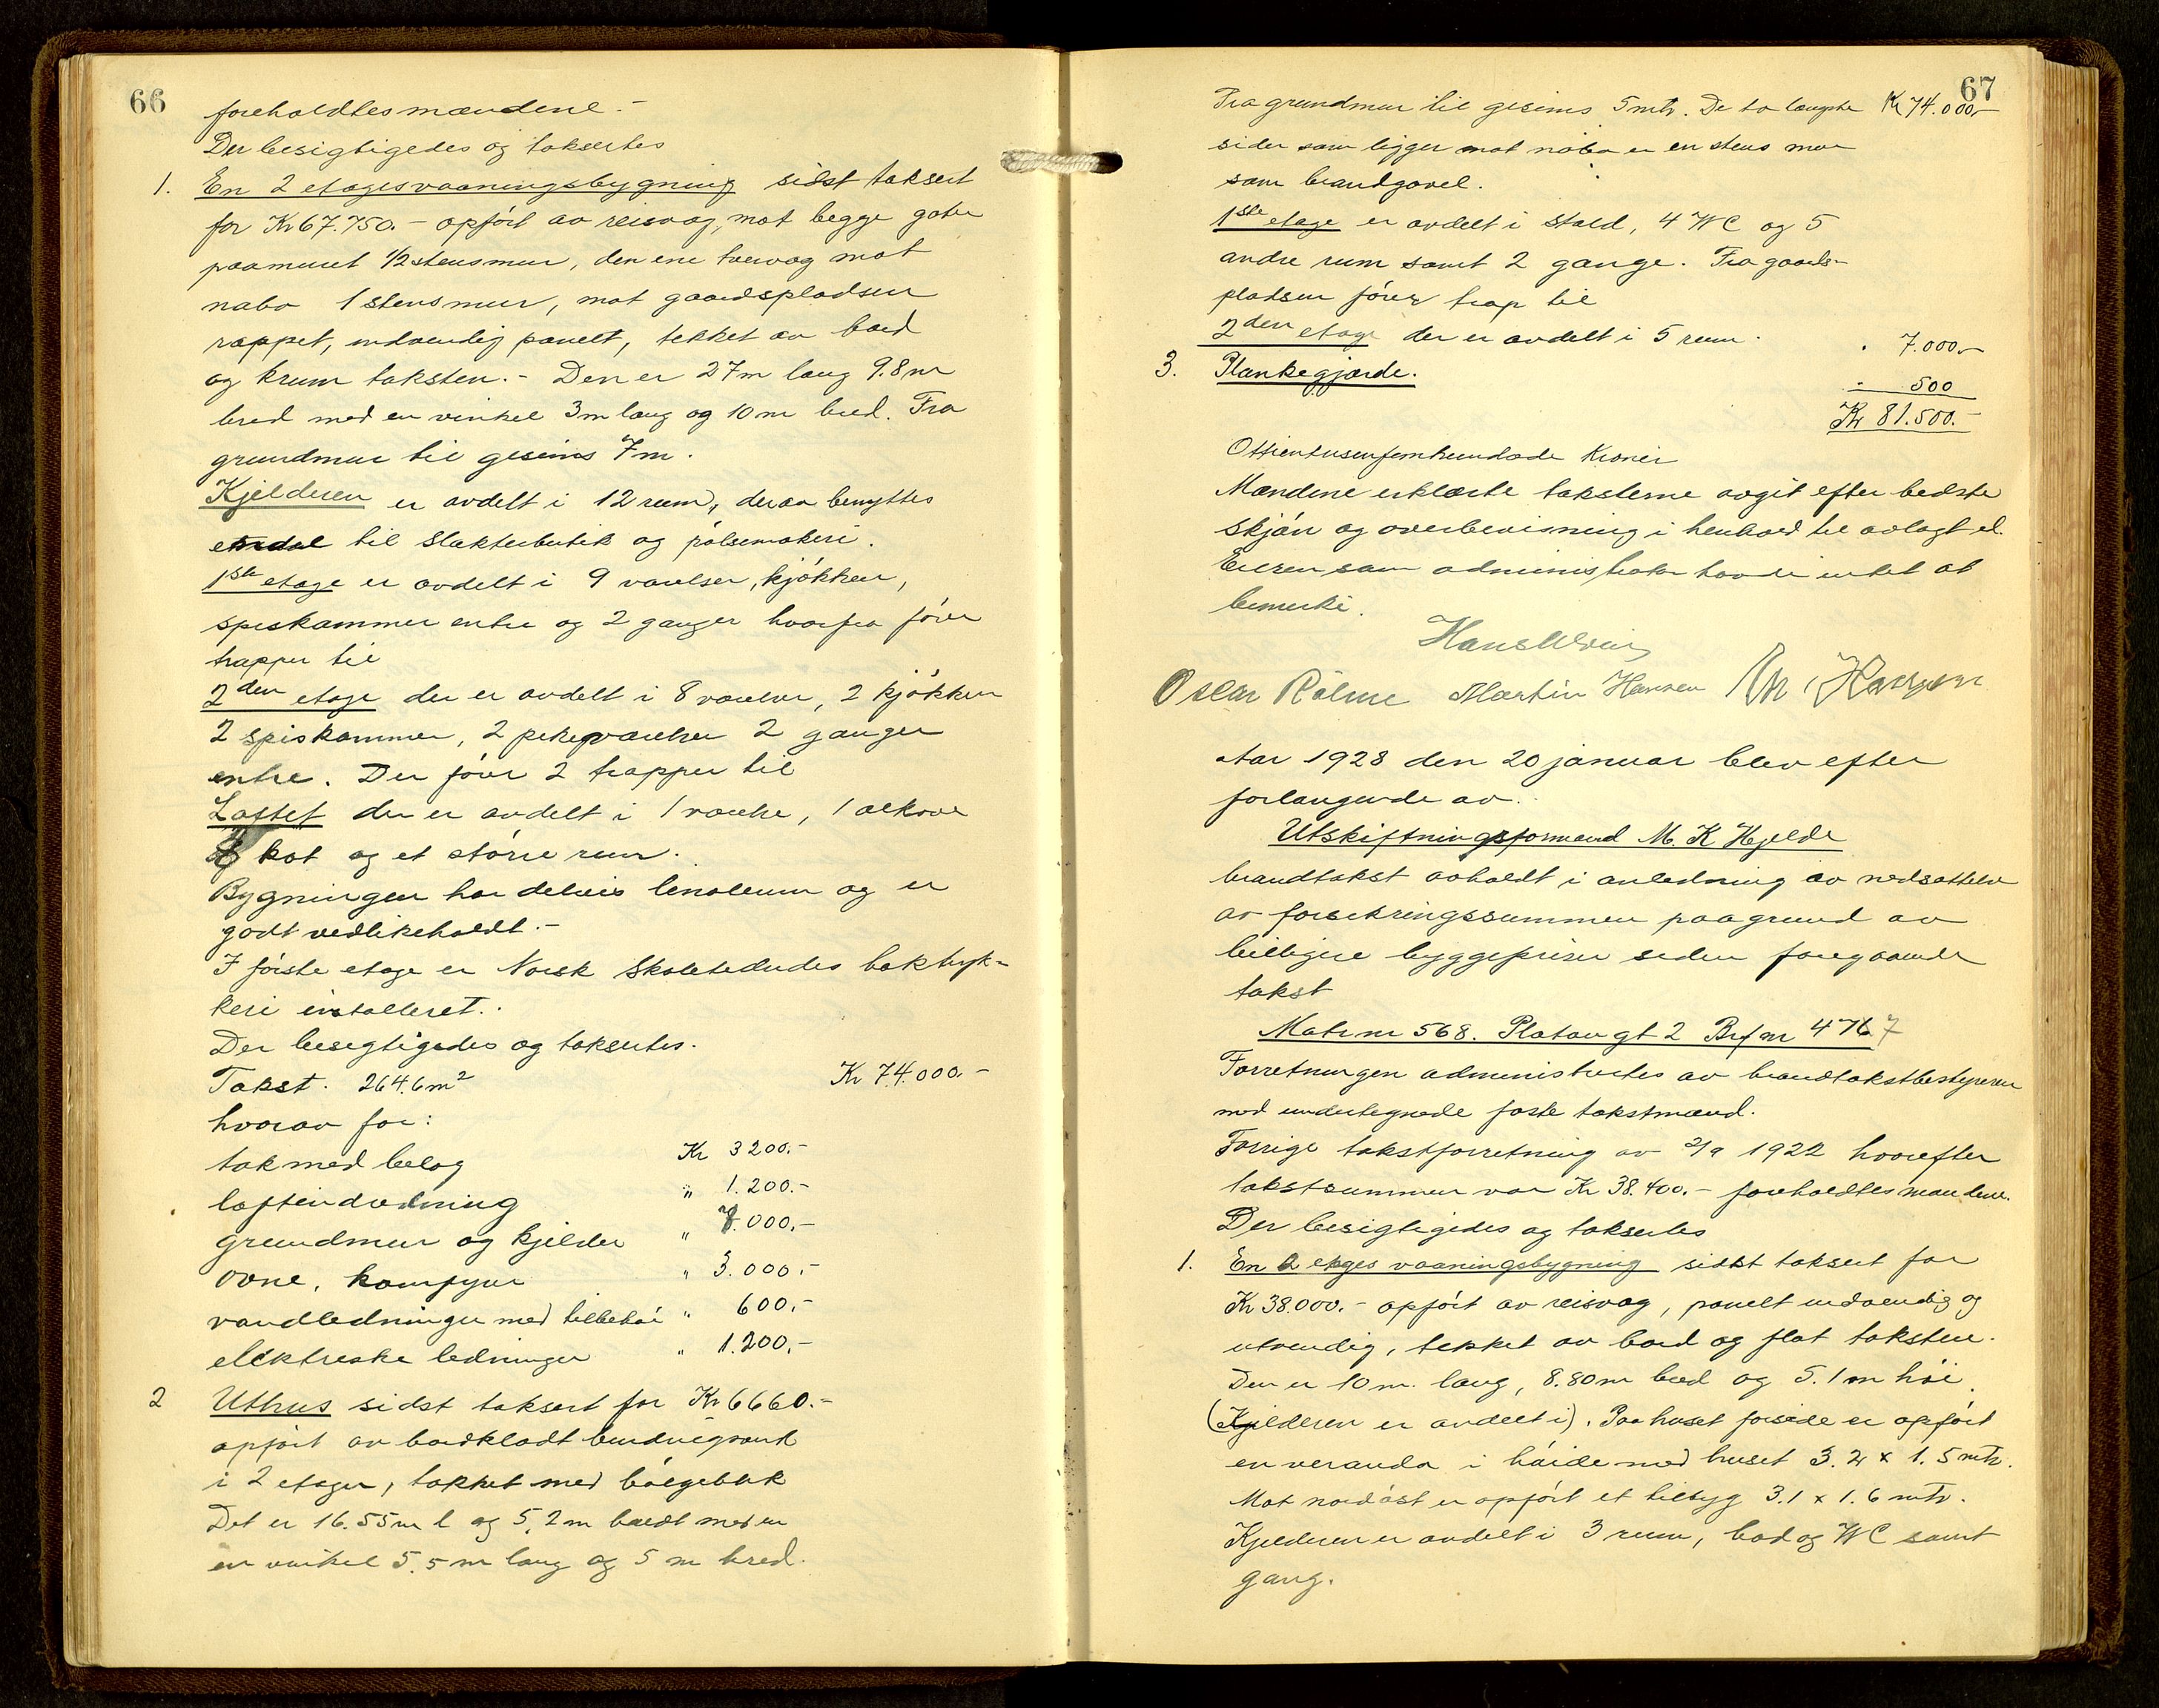 66
foreholdtes mændene.-
Der besigtigedes og taksertes
1. En 2 etages vaaningsbygning sidst taksert
for Kr 67.750.- opført av reisvæg, mot begge gater
paamuret 1/2 stensmur, den ene tvervæg mot
nabo 1 stensmur, mot gaardspladsen
rappet, indvendig panelt, tekket av bord
og krum taksten.- Den er 27m lang 9.8 m
bred med en vinkel 3m lang og 10 m bred. Fra
grundmur til gesims 7m.
Kjelderen er avdelt i 12 rum, derav benyttes
endel til slakterbutik og pølsemakeri.
1ste etage er avdelt i 9 værelser, kjøkken,
spiskammer entre og 2 ganger hvorfra fører
trapper til
2den etage der er avdelt i 8 værelser, 2 kjøkken
2 spiskammer, 2 pikeværelser 2 ganger
entre. Der fører 2 trapper til
Loftet der er avdelt i 1 værelse, 1 alkove
kot og et større rum.
Bygningen har delvis linoleum og er
godt vedlikeholdt.-
I første etage er Norsk Skoletidendes boktryk-
keri installeret.
Der besigtigedes og taksertes.
Takst. 264.6 m2 Kr 74.000.-
hvorav for:
tak med belæg Kr 3200.-
loftsindredning " 1.200.-
grundmur og kjelder " 8.000.-
ovne, komfyrer " 3.000.-
vandledninger med tilbehør " 600.-
elektriske ledninger " 1.200.-
2 Uthus sidst taksert for Kr 6660.-
opført av bordklædt bindingsverk
i 2 etager, takket med bølgeblik
Det er 16.55m l og 5.2m bredt med en
en vinkel 5.5 m lang og 5 m bred.
67
Fra grundmur til gesims 5 mtr. De to længste Kr 74.000.-
sider som ligger mot nabo er en stens mur
som brandgavel.
1ste etage er avdelt i stald, 4 WC og 5
andre rum samt 2 gange. Fra gaards-
pladsen fører trap til
2den etage der er avdelt i 5 rum. " 7.000.-
3. Plankegjærde. " 500
Kr 81.500.-
Ottientusenfemhundrede Kroner
Mændene erklærte taksterne avgit efter bedste
skjøn og overbevisning i henhold til avlagt ed.
Eieren som administrator havde intet at
bemerke.
Oscar Rølme Martin Hansen
Aar 1928 den 20 januar blev efter
forlangende av
Utskiftningsformand M. K Hjelde
brandtakst avholdt i anledning av nedsættelse
av forsikringssummen paagrund av
billigere byggepriser siden foregaaende
takst
Matr nr 568. Platougt 2 Brf nr 4767
Forretningen administrertes av brandtakstbestyreren
med undertegnede faste takstmænd.
Forrige takstforretning av 2/9 1922 hvorefter
takstsummen var Kr 38.400.- foreholdtes mændene.
Der besigtigedes og taksertes
1. En 2 etages vaaningsbygning sidst taksert for
Kr 38.000.- opført av reisvæg, panelt indvendig og
utvendig, tekket av bord og flat taksten.
Den er 10 m. lang, 8.80m bred og 5.1m høi.
(Kjelderen er avdelt i). Paa huset forside er opført
en veranda i høide med huset 3.2 x 1.5 mtr.
Mot nordøst er opført et tilbyg 3.1 x 1.6 mtr.
Kjelderen er avdelt i 3 rum, bad og WC samt
gang.